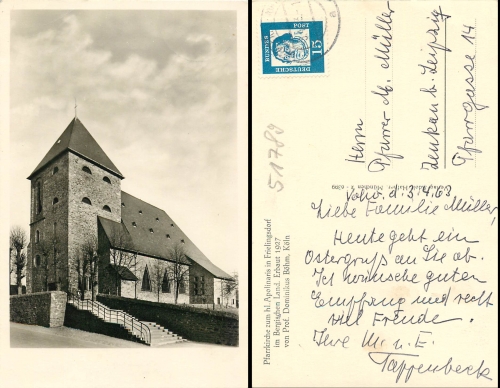 DEUTSCHE
BUNDESPOST
15
Herrn
Pfarrer M. Müller
b. Leipzig
Pfarrgasse 14
51789
Pfarrkirche zum hl. Apolinaris in Frielingsdorf
im Bergischen Land. Erbaut 1927
von Prof. Dominikus Böhm, Köln
d. 3.4.63
Liebe Familie Müller,
Heute geht ein
Ostergruß an Sie ab.
Ich wünsche guten
Empfang und recht
viel Freude.
Ihre M. u. E.
Tappenbeck